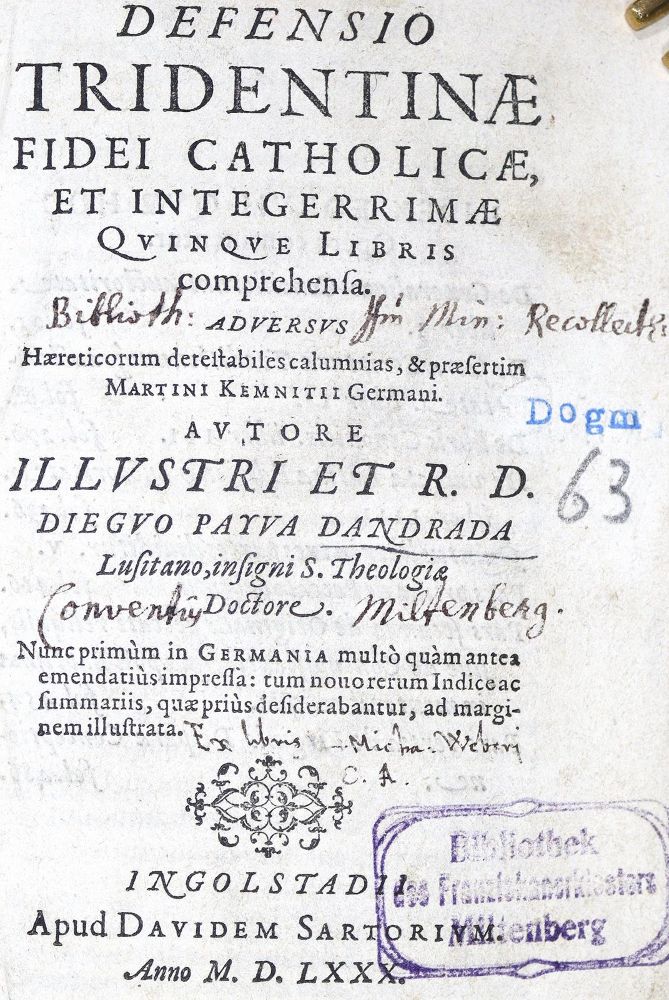 DEFENSIO
TRIDENTINÆ
FIDEI CATHOLICÆ,
ET INTEGERRIMÆ
QVINQVE LIBRIS
comprehenſa.
Biblioth: ADVERSVS ffm Min: Recollect:
Hæreticorum deteſtabiles calumnias, & præſertim
MARTINI KEMNITII Germani.
AVTORE
Dogm
ILLVSTRI ET R. D.
63
DIEGVO PAYVA DANDRADA
Luſitano, inſigni S. Theologiæ
Conventûs Doctore. Miltenberg.
Nunc primùm in GERMANIA multò quàm antea
emendatiùs impreſſa: tum nouo rerum Indice ac
ſummariis, quæ priùs deſiderabantur, ad margi-
nem illuſtrata.
Ex libris Micha. Weberi
C. A.
INGOLSTADII
Apud DAVIDEM SARTORIVM.
Anno M. D. LXXX.
Bibliothek
des Franziskanerklosters
Miltenberg